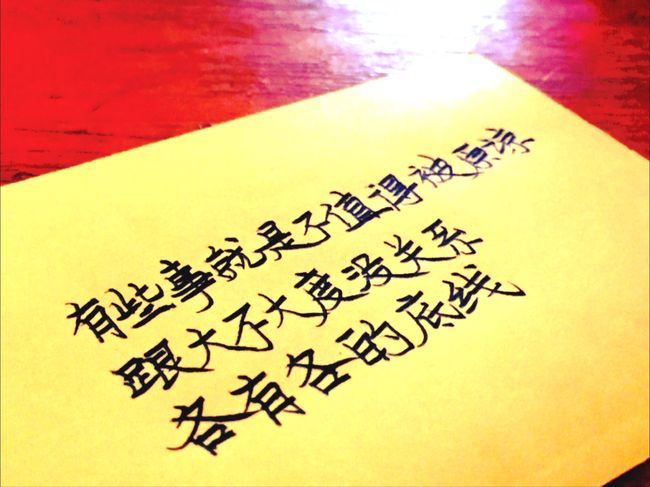 有些事就是不值得被原谅
跟大不大度没关系
各有各的底线